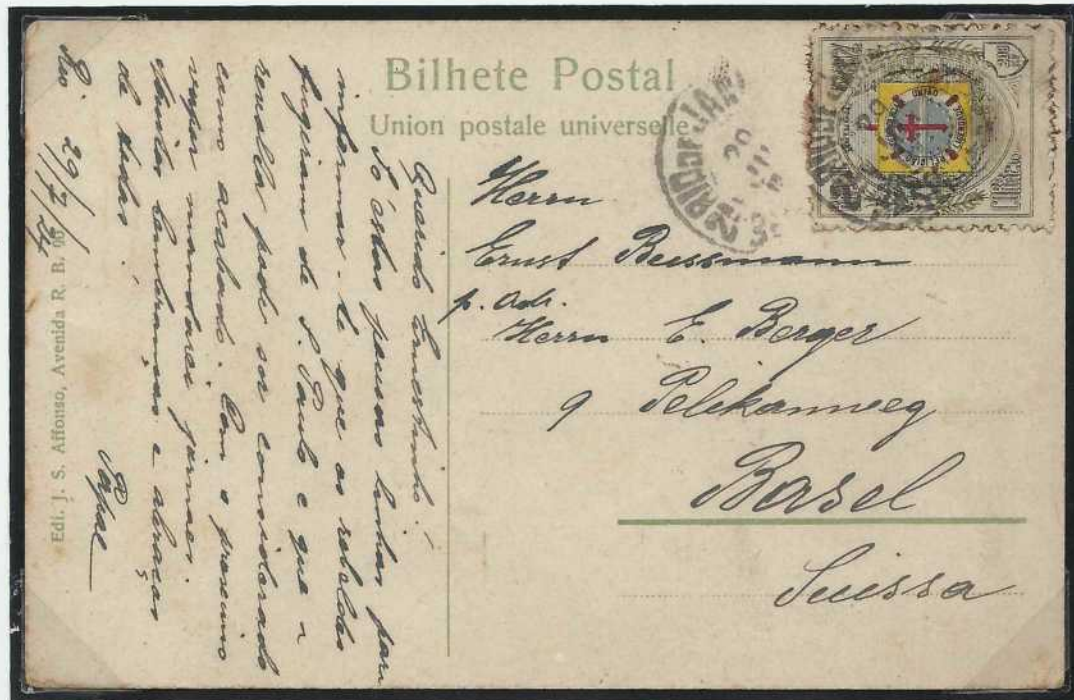 Bilhete Postal
Union postale universelle
Herrn
Ernst Bussmann
p. adr.
Herrn E. Berger
9 Pelikanweg
Basel
Suissa
Querido Ernestinho!
Só estas poucas linhas para
informar-te que os rebeldes
fugiram de S. Paulo e que a
revolta pode ser considerado
como acabado. Com o proximo
vapor mandarei jornaes.
Muitas lembranças e abraços
de todos.
Papae
Rio. 29/7/24
Edi. J. S. Affonso, Avenida R. B. 90
RIO DE JANEIRO
UNIÃO
200
CORREIO